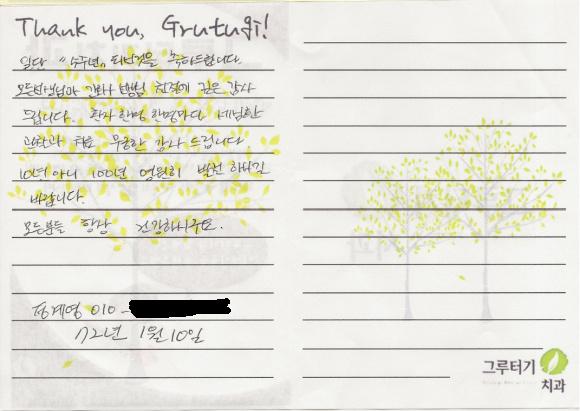 Thank you, Grutugi!
일단 "4주년" 되신것을 축하드립니다.
모든선생님과 간호사 쌤님 친절에 깊은 감사
드립니다. 환자 한명 한명마다 세심한
관찰과 치료 무궁한 감사 드립니다.
10년 아니 100년 영원히 발전 하시길
바랍니다.
모든분들 항상 건강하시구요.
정계영 010-
72년 1월 10일
그루터기
치과